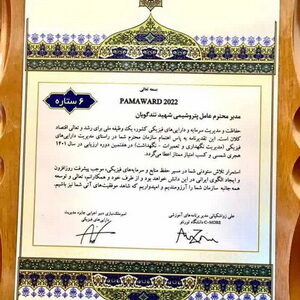 بسمه تعالی
۶ ستاره
PAMAWARD 2022
مدیر محترم عامل پتروشیمی شهید تندگویان
حفاظت و مدیریت سرمایه و دارایی‌های فیزیکی کشور، یک وظیفه ملی برای رشد و تعالی اقتصاد
کلان است. این تقدیرنامه به پاس اهتمام سازمان محترم شما در راستای مدیریت دارایی‌های
فیزیکی (مدیریت نگهداری و تعمیرات - نگهداشت)، در هفتمین دوره ارزیابی در سال ۱۴۰۱
هجری شمسی و کسب امتیاز ممتاز اعطا می‌گردد.
استمرار تلاش ستودنی شما، در مسیر حفظ منابع و سرمایه‌های فیزیکی، موجب پیشرفت روزافزون
و ایجاد الگوی ایرانی در این دانش خواهد بود و از طرف خود و همکارانم، تعالی و توسعه
همه جانبه سازمان شما را آرزومندیم و امیدواریم که شاهد موفقیت‌های آتی شما نیز باشیم.
علی زواشکیانی مدیر برنامه‌های آموزشی
C-MORE دانشگاه تورنتو
دبیر اجرایی جایزه مدیریت
دارایی‌های فیزیکی